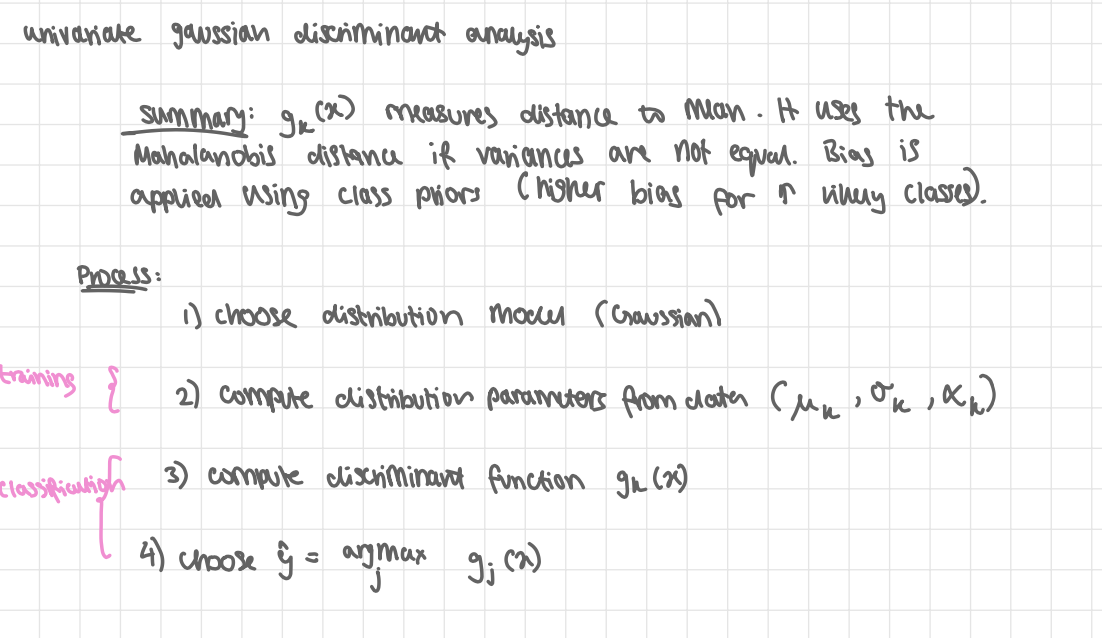 univariate gaussian discriminant analysis
summary: gₖ(x) measures distance to mean. It uses the
Mahalanobis distance if variances are not equal. Bias is
applied using class priors (higher bias for ↑ likely classes).
Process:
1) choose distribution model (Gaussian)
training { 2) compute distribution parameters from data (μₖ, σₖ, αₖ)
classification { 3) compute discriminant function gₖ(x)
4) choose ŷ = argmax gⱼ(x)
j